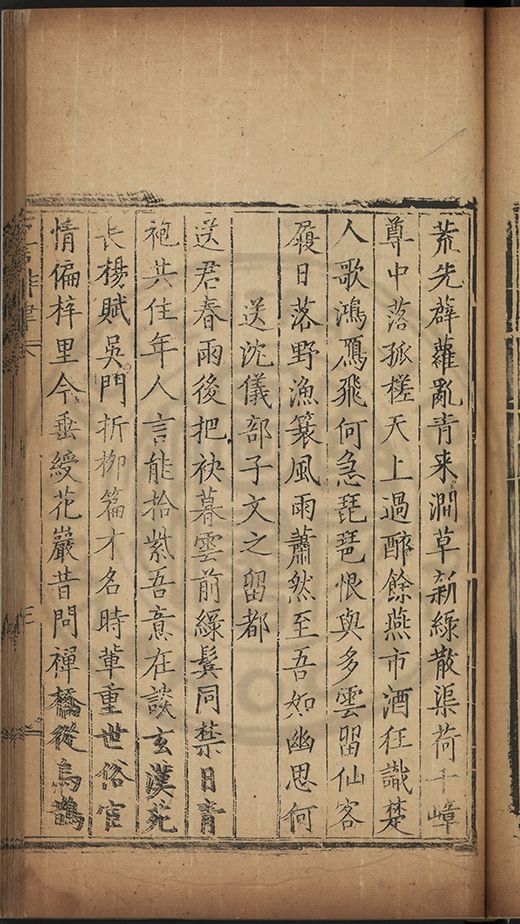 荒先薜蘿亂青来澗草新綠散渠荷千嶂
尊中落孤槎天上過酔餘燕市酒狂識楚
人歌鴻鴈飛何急琵琶恨與多雲留仙客
履日落野漁蓑風雨蕭然至吾如幽思何
送沈儀部子文之留都
送君春雨後把袂暮雲前綠鬂同禁日青
袍共住年人言能拾紫吾意在談玄漢苑
長楊賦吳門折柳篇才名時軰重世俗宦
情偏梓里今垂綬花巖昔問禪橋從烏鵲